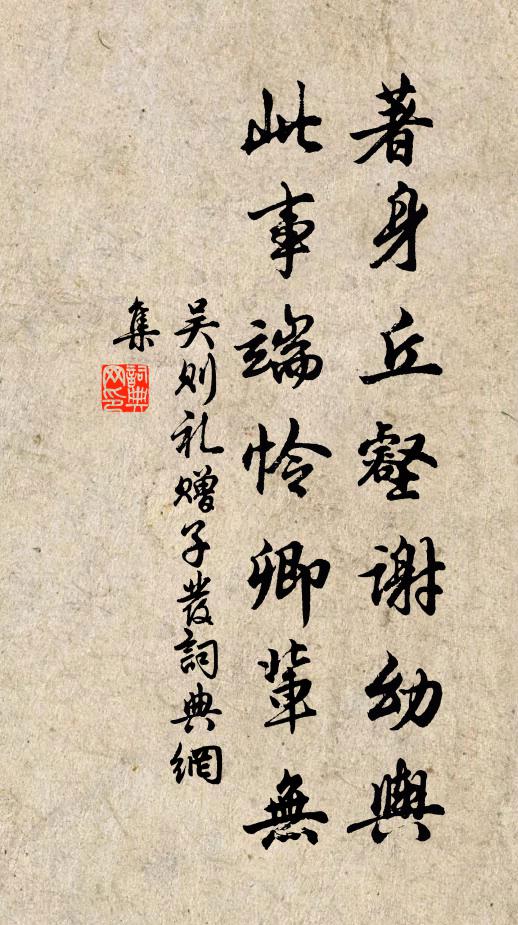 著身丘壑謝幼輿
此事端怜卿輩無
吴则礼赠子發詞典網
集
詞典網印